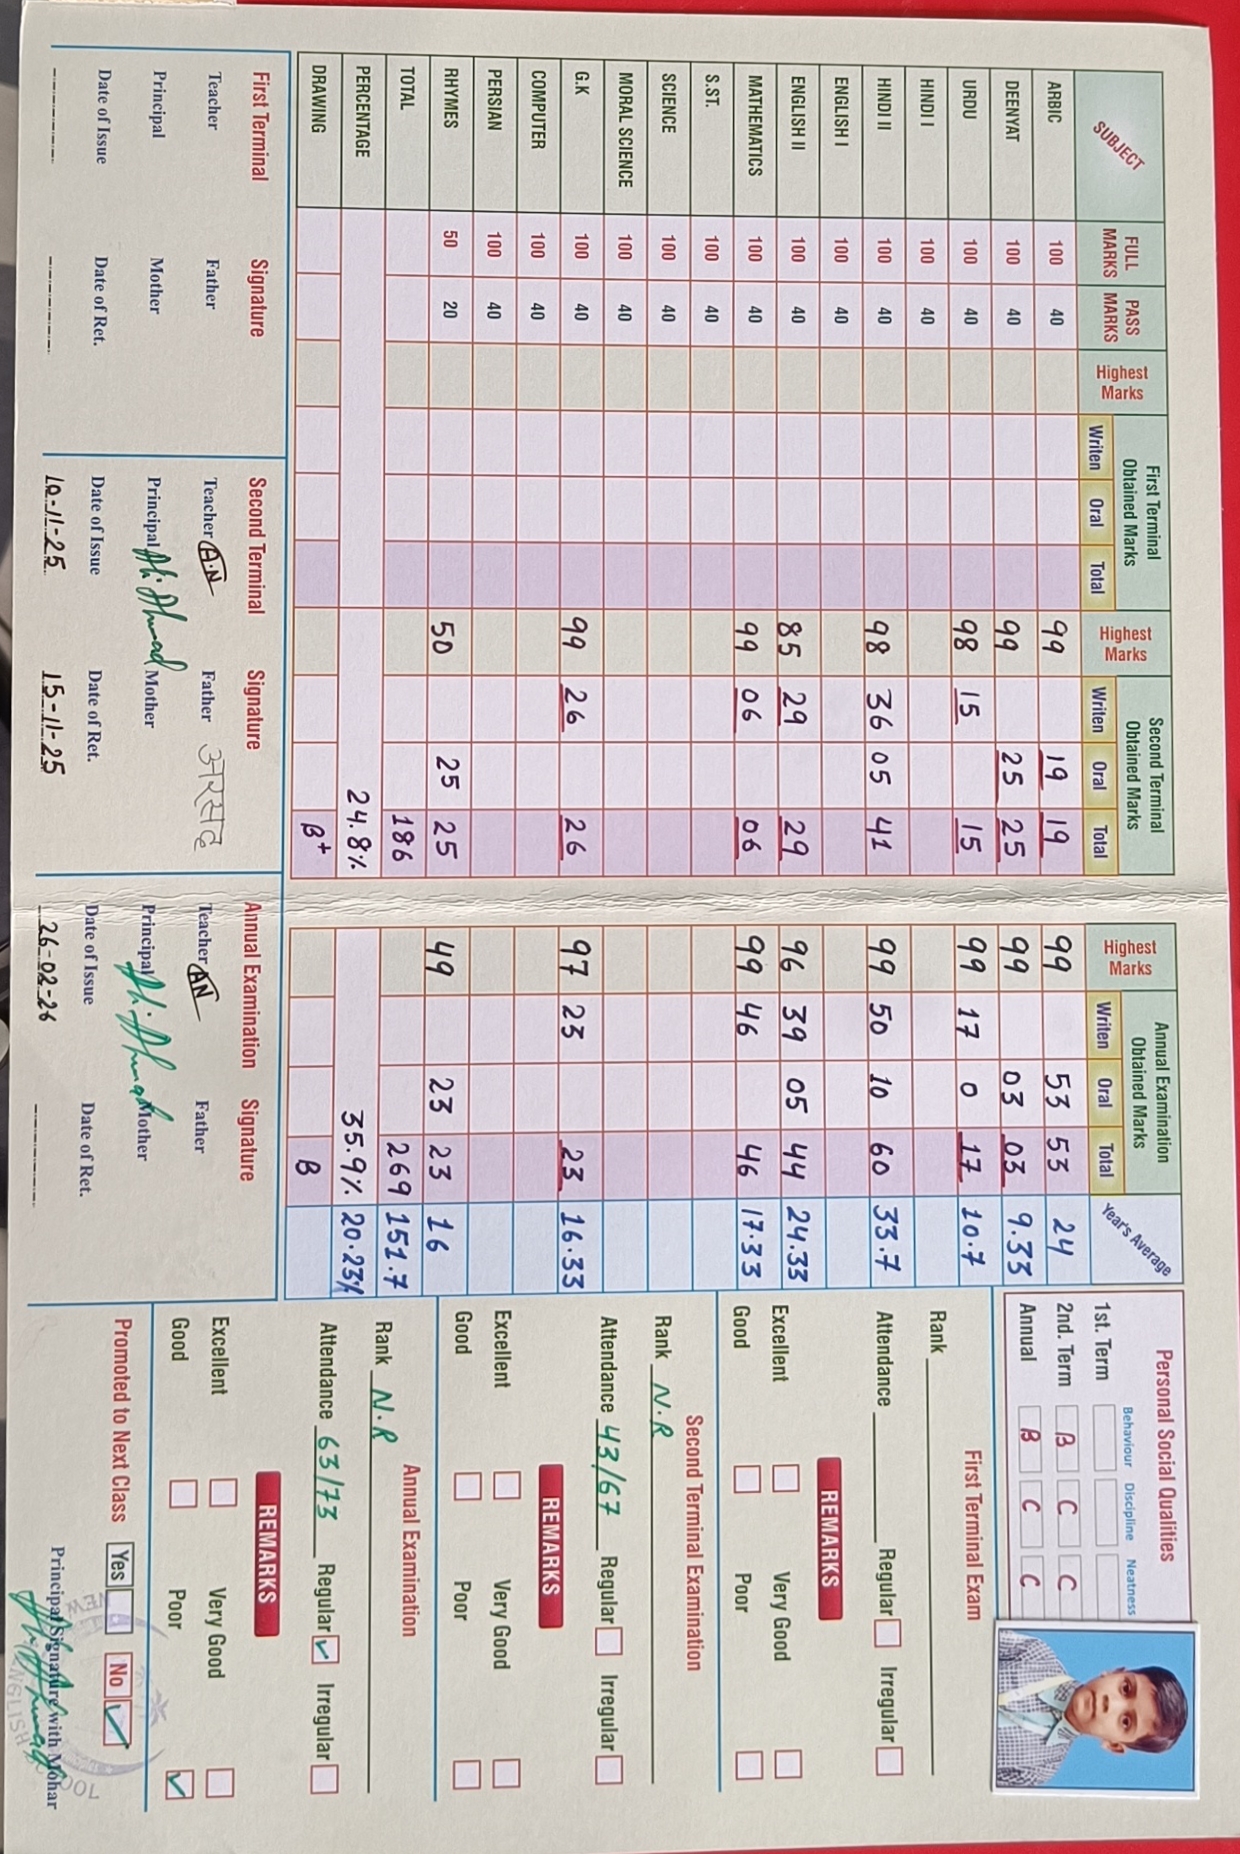 SUBJECT FULL MARKS PASS MARKS Highest Marks First Terminal Obtained Marks Writen Oral Total Highest Marks Second Terminal Obtained Marks Writen Oral Total Highest Marks Annual Examination Obtained Marks Writen Oral Total Year's Average
ARBIC 100 40 99 19 19 99 53 53 24
DEENYAT 100 40 99 25 25 99 03 03 9.33
URDU 100 40 98 15 15 99 17 0 17 10.7
HINDI I 100 40
HINDI II 100 40 98 36 05 41 99 50 10 60 33.7
ENGLISH I 100 40
ENGLISH II 100 40 85 29 29 96 39 05 44 24.33
MATHEMATICS 100 40 99 06 06 99 46 46 17.33
S.ST. 100 40
SCIENCE 100 40
MORAL SCIENCE 100 40
G.K 100 40 99 26 26 97 23 23 16.33
COMPUTER 100 40
PERSIAN 100 40
RHYMES 50 20 50 25 25 49 23 23 16
TOTAL 186 269 151.7
PERCENTAGE 24.8% 35.9% 20.23%
DRAWING B+ B
First Terminal Signature
Teacher Father
Principal Mother
Date of Issue Date of Ret.
Second Terminal Signature
Teacher A.N Father अरसद
Principal Ali Ahmad Mother
Date of Issue Date of Ret.
10-11-25 15-11-25
Annual Examination Signature
Teacher AN Father
Principal Ali Ahmad Mother
Date of Issue Date of Ret.
26-02-26
Personal Social Qualities
Behaviour Discipline Neatness
1st. Term
2nd. Term B C C
Annual B C C
First Terminal Exam
Rank
Attendance Regular Irregular
REMARKS
Excellent Very Good
Good Poor
Second Terminal Examination
Rank N.R
Attendance 43/67 Regular Irregular
REMARKS
Excellent Very Good
Good Poor
Annual Examination
Rank N.R
Attendance 63/73 Regular ✓ Irregular
REMARKS
Excellent Very Good
Good Poor ✓
Promoted to Next Class Yes No ✓
Principal Signature with Mohar
Ali Ahmad
NEW ENGLISH